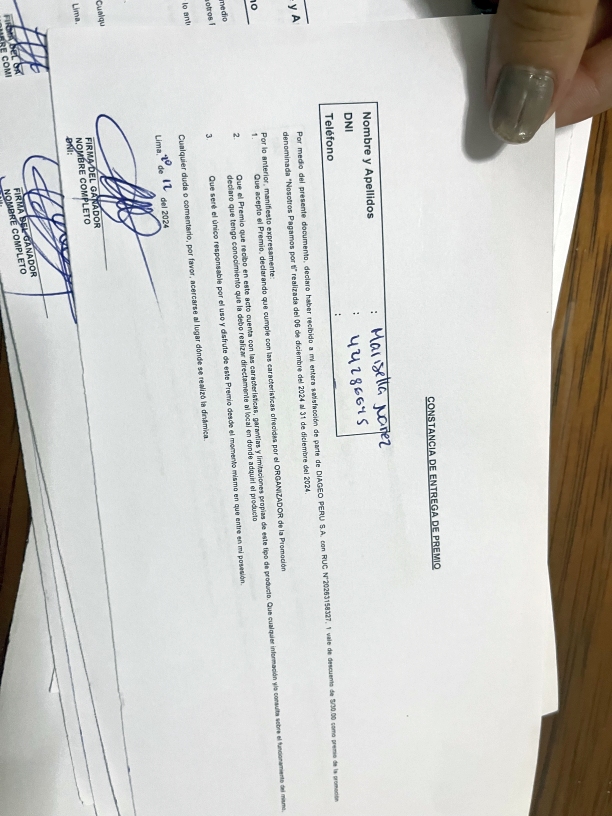 CONSTANCIA DE ENTREGA DE PREMIO
Nombre y Apellidos : Marisella Nuñez
DNI : 44286645
Teléfono :
Por medio del presente documento, declaro haber recibido a mi entera satisfacción de parte de DIAGEO PERU S.A. con RUC N°20263158327, 1 vale de descuento de S/30.00 como premio de la promoción
denominada "Nosotros Pagamos por ti" realizada del 06 de diciembre del 2024 al 31 de diciembre del 2024
Por lo anterior, manifiesto expresamente:
1. Que acepto el Premio, declarando que cumple con las características ofrecidas por el ORGANIZADOR de la Promoción
2. Que el Premio que recibo en este acto cuenta con las características, garantías y limitaciones propias de este tipo de producto. Que cualquier información y/o consulta sobre el funcionamiento del mismo,
declaro que tengo conocimiento que la debo realizar directamente al local en donde adquirí el producto
3. Que seré el único responsable por el uso y disfrute de este Premio desde el momento mismo en que entre en mi posesión.
Cualquier duda o comentario, por favor, acercarse al lugar donde se realizó la dinámica.
Lima, 20 de 12 del 2024
FIRMA DEL GANADOR
NOMBRE COMPLETO
DNI:
FIRMA DEL GANADOR
NOMBRE COMPLETO